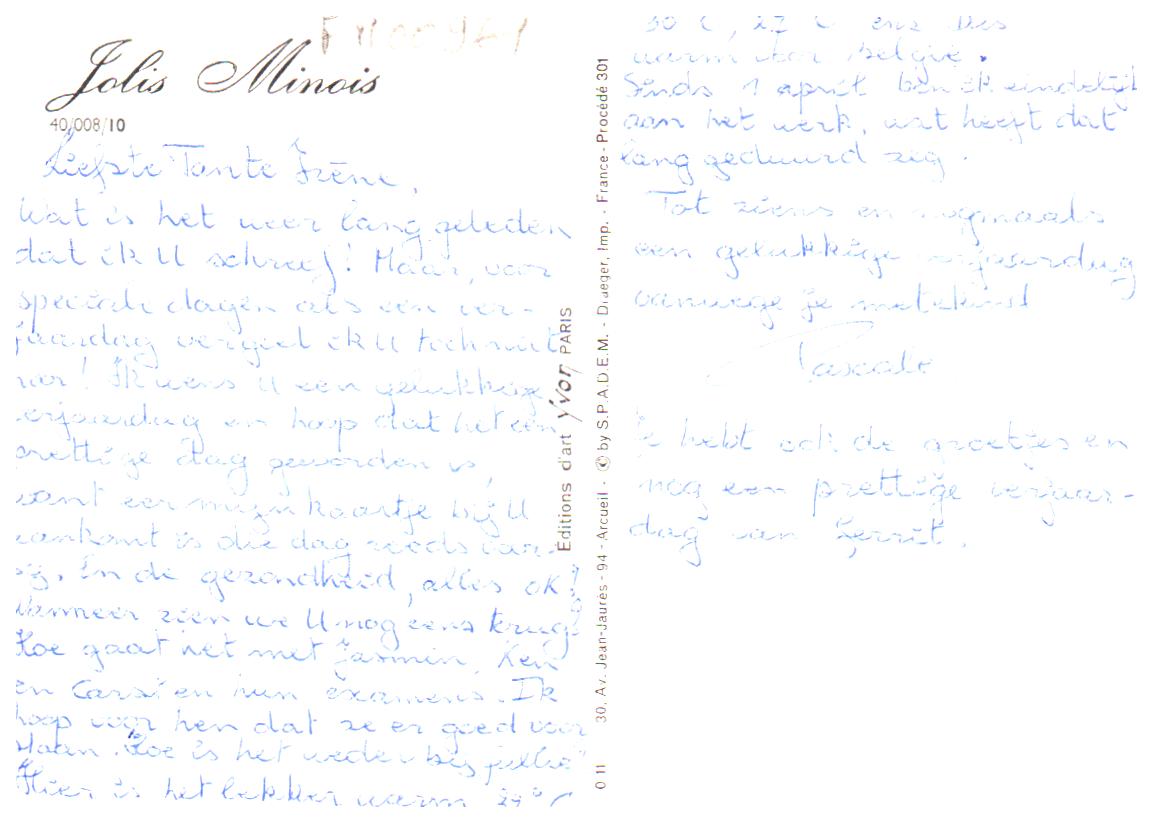 Jolis Minois
40/008/10
Liefste Tante Irène,
Wat is het weer lang geleden
dat ik U schreef! Maar, voor
speciale dagen als een ver-
jaardag vergeet ik U toch niet
hoor! Ik wens U een gelukkige
verjaardag en hoop dat het een
prettige dag geworden is,
want eer mijn kaartje bij U
aankomt is die dag reeds voor-
bij. En de gezondheid, alles OK?
Wanneer zien we U nog eens terug?
Hoe gaat het met Jasmin, Ken
en Carsten hun examens. Ik
hoop voor hen dat ze er goed voor
staan. Hoe is het weder bij jullie?
Hier is het lekker warm 27°C
Editions d'art Yvon PARIS
30, Av. Jean-Jaurès - 94 - Arcueil - © by S.P.A.D.E.M. - Draeger, Imp. - France - Procédé 301
O 11
30 C, 27 C enz
warm voor België.
Sinds 1 april ben ik eindelijk
aan het werk, wat heeft dat
lang geduurd zeg.
Tot ziens en nogmaals
een gelukkige verjaardag
vanwege je metekind
Pascale
Je hebt ook de groetjes en
nog een prettige verjaar-
dag van Gerrit.